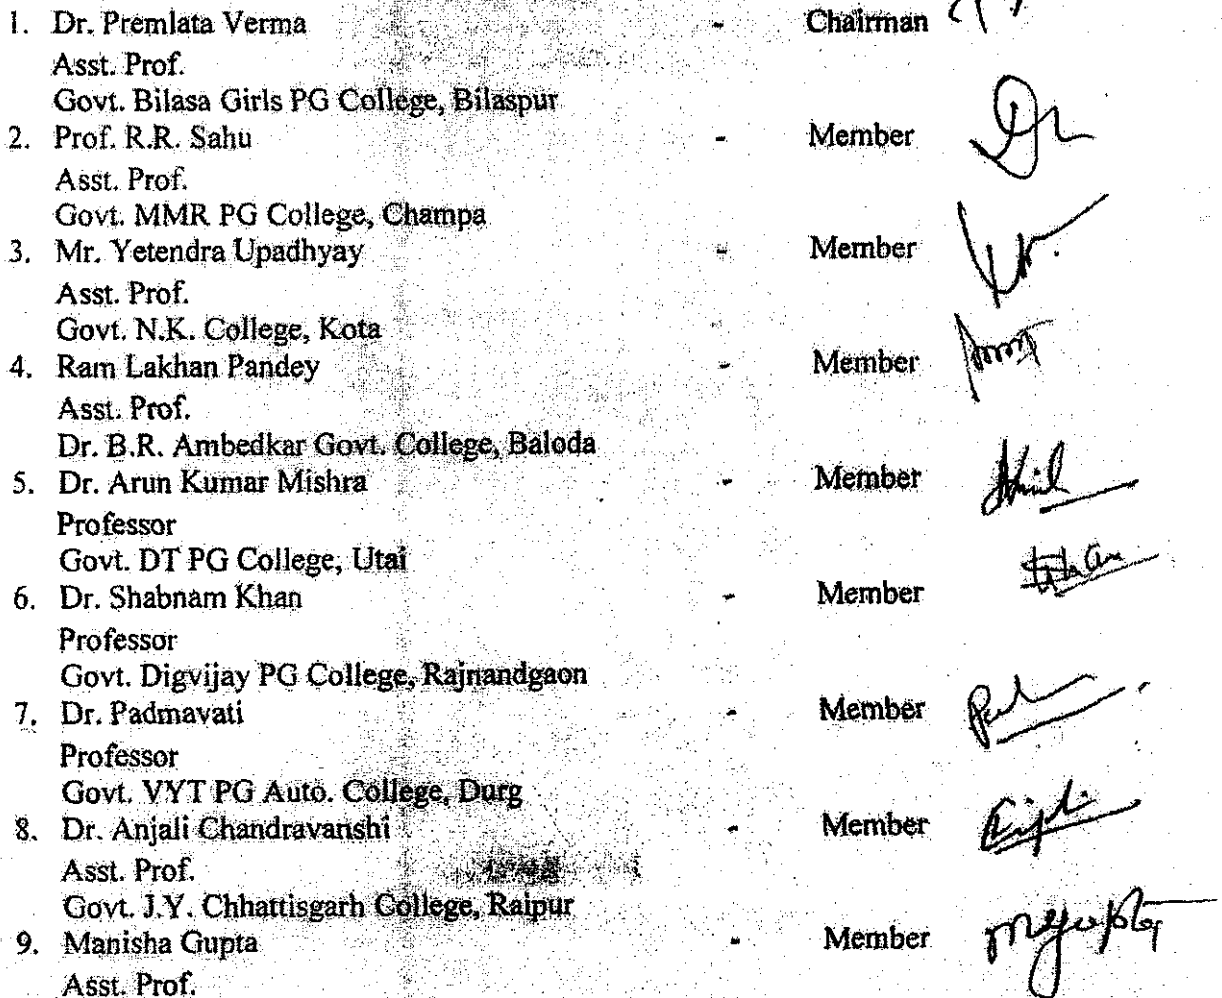 1. Dr. Premlata Verma - Chairman
Asst. Prof.
Govt. Bilasa Girls PG College, Bilaspur
2. Prof. R.R. Sahu - Member
Asst. Prof.
Govt. MMR PG College, Champa
3. Mr. Yetendra Upadhyay - Member
Asst. Prof.
Govt. N.K. College, Kota
4. Ram Lakhan Pandey - Member
Asst. Prof.
Dr. B.R. Ambedkar Govt. College, Baloda
5. Dr. Arun Kumar Mishra - Member
Professor
Govt. DT PG College, Utai
6. Dr. Shabnam Khan - Member
Professor
Govt. Digvijay PG College, Rajnandgaon
7. Dr. Padmavati - Member
Professor
Govt. VYT PG Auto. College, Durg
8. Dr. Anjali Chandravanshi - Member
Asst. Prof.
Govt. J.Y. Chhattisgarh College, Raipur
9. Manisha Gupta - Member mgupta
Asst. Prof.